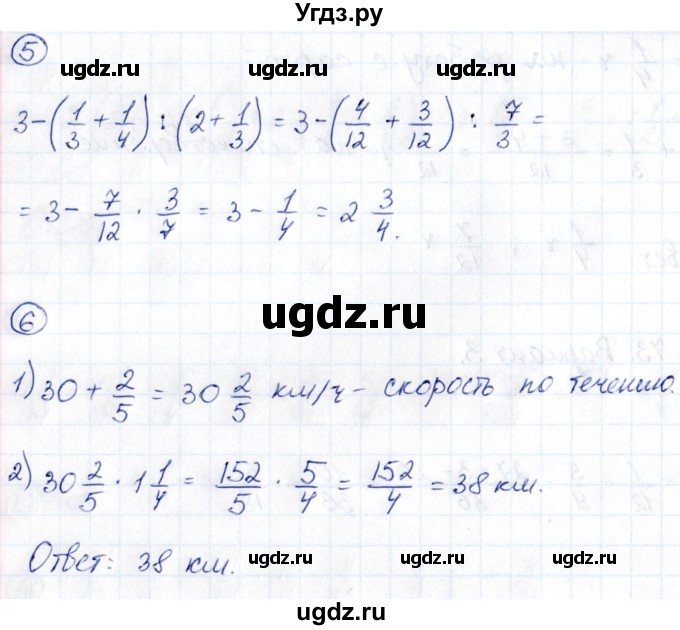 Угдз.ру
5
ugdz.ru ugdz.ru ugdz.ru
3-(1/3+1/4):(2+1/3)=3-(4/12+3/12):7/3=
=3-7/12·3/7=3-1/4=2 3/4.
ugdz.ru
6
ugdz.ru ugdz.ru
1) 30+2/5=30 2/5 км/ч - скорость по течению.
ugdz.ru
2) 30 2/5·1 1/4=152/5·5/4=152/4=38 км.
Ответ: 38 км.
ugdz.ru ugdz.ru
ugdz.ru